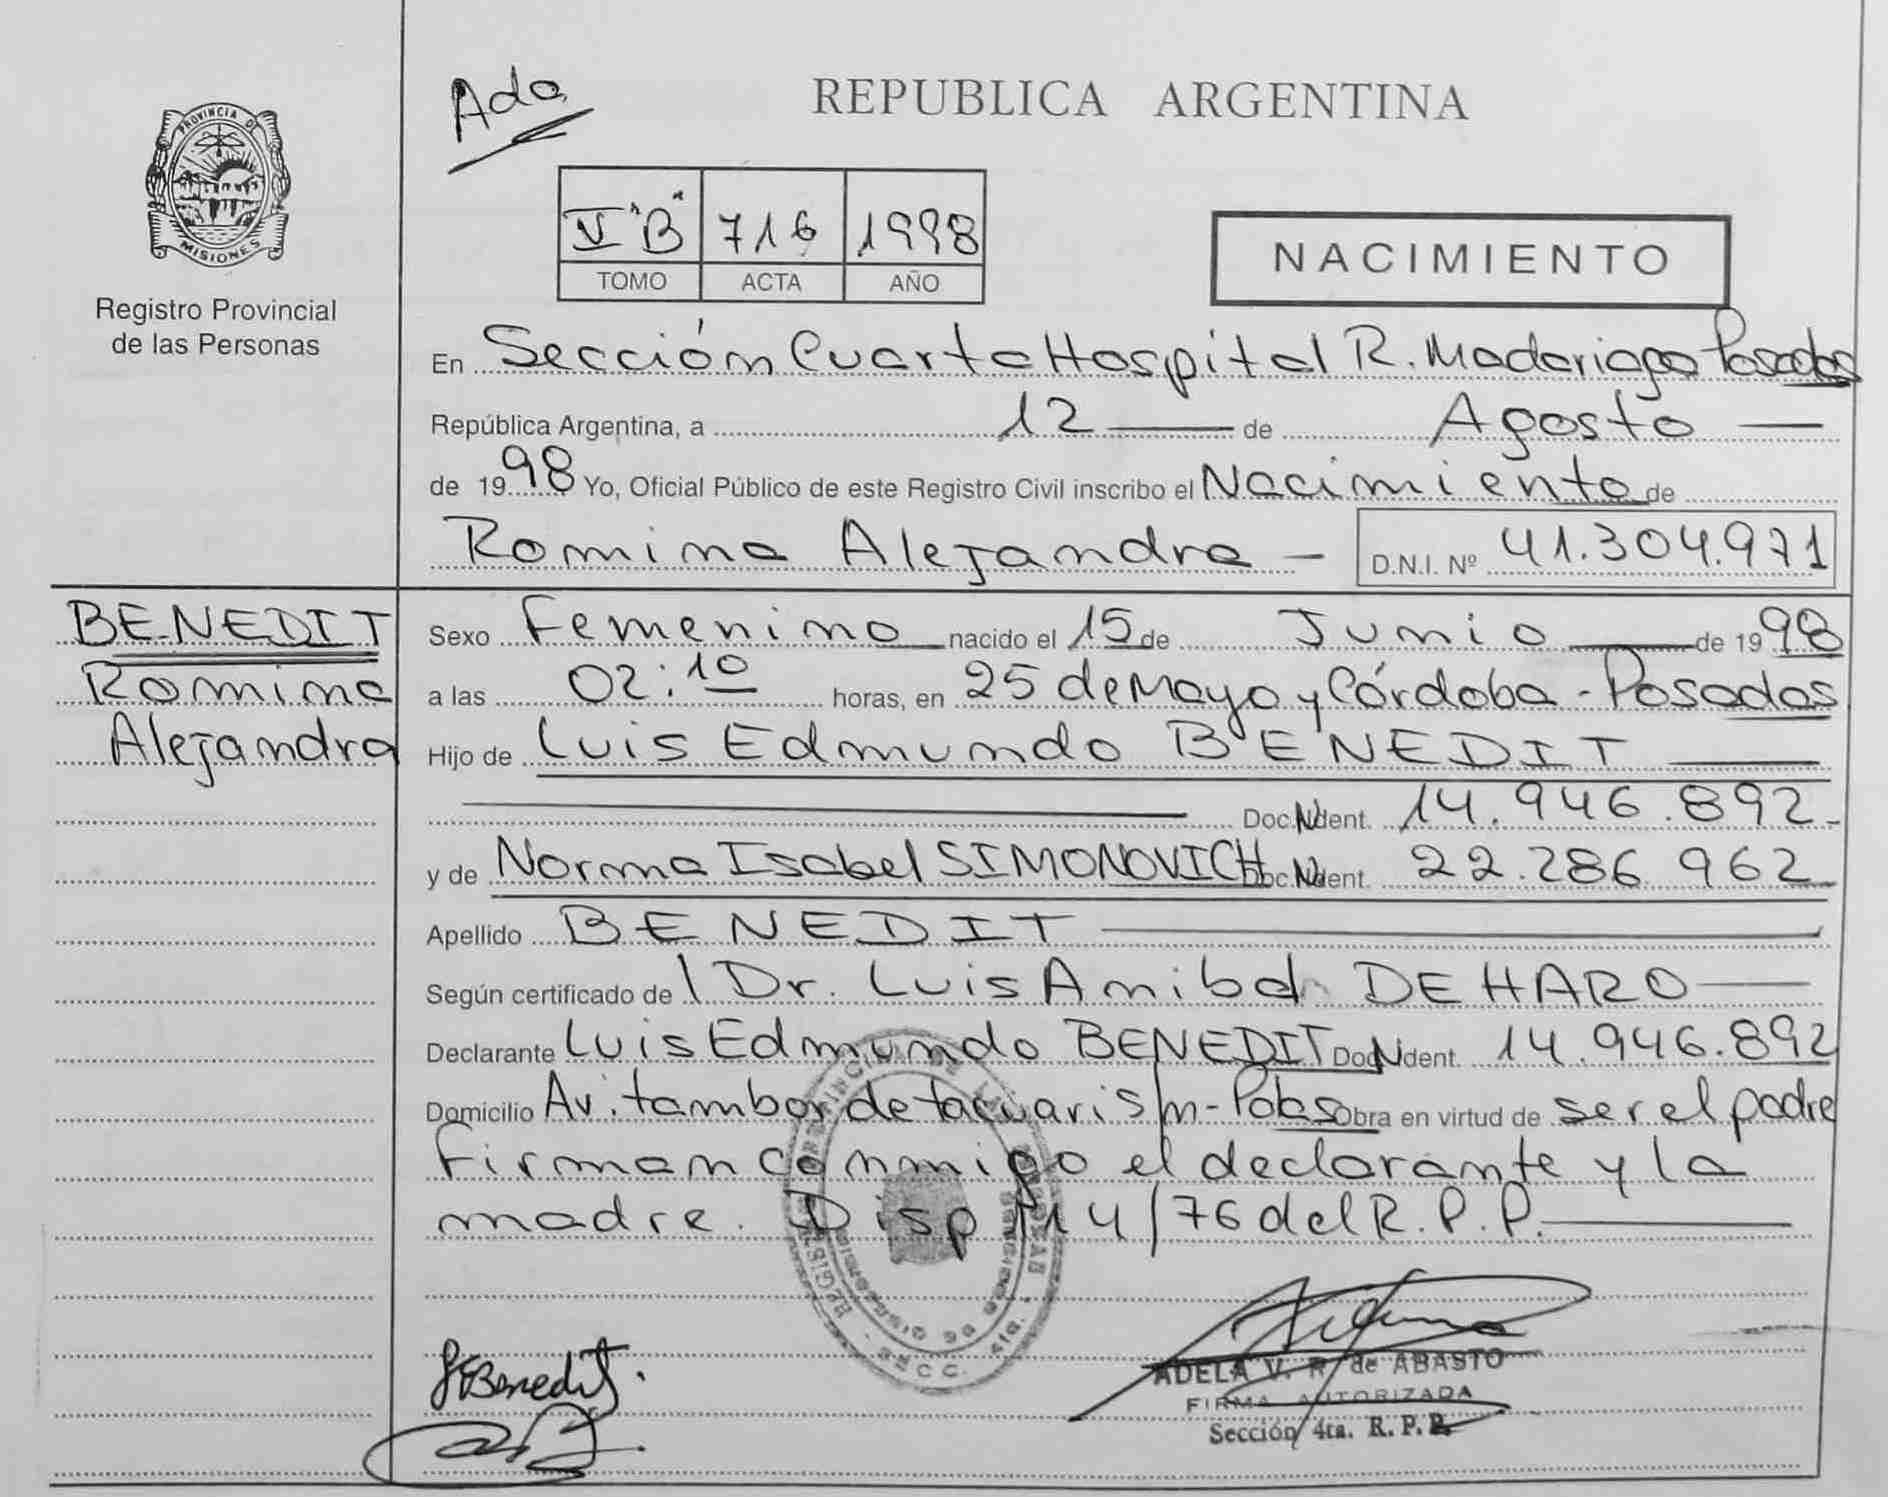 PROVINCIA DE
MISIONES
Registro Provincial
de las Personas
Ada
REPUBLICA ARGENTINA
V "B" 716 1998
TOMO ACTA AÑO
NACIMIENTO
En Sección Cuarta Hospital R. Madariaga Posadas
República Argentina, a 12 de Agosto
de 1998 Yo, Oficial Público de este Registro Civil inscribo el Nacimiento de
Romina Alejandra D.N.I. Nº 41.304.971
BENEDIT
Romina
Alejandra
Sexo Femenino nacido el 15 de Junio de 1998
a las 02:10 horas, en 25 de Mayo y Córdoba - Posadas
Hijo de Luis Edmundo BENEDIT
Doc. N Ident. 14.946.892
y de Norma Isabel SIMONOVICH Doc. N Ident. 22.286.962
Apellido BENEDIT
Según certificado de l Dr. Luis Anibal DE HARO
Declarante Luis Edmundo BENEDIT Doc N Ident. 14.946.892
Domicilio Av. tambor de tacuari s/n - Pdas Obra en virtud de ser el padre
Firman conmigo el declarante y la
madre. Disp 114/76 del R.P.P.
Benedit.
ADELA V. R. de ABASTO
FIRMA AUTORIZADA
Sección 4ta. R. P. P.